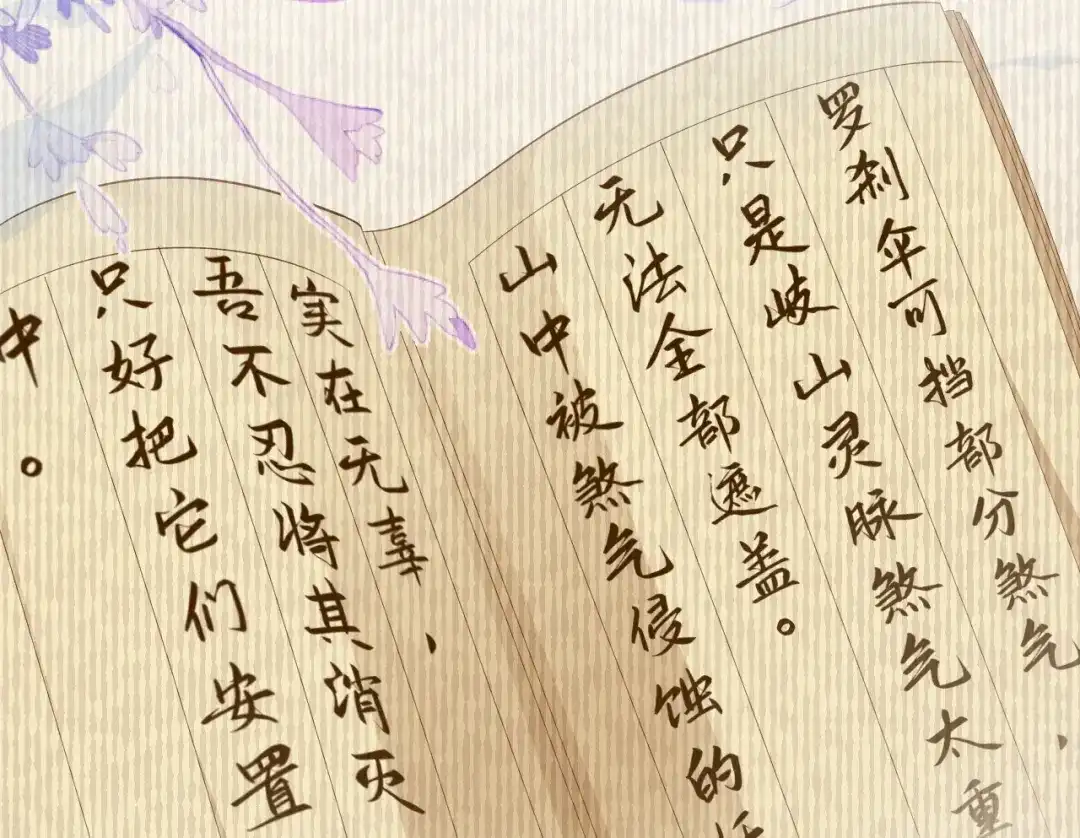 罗刹伞可挡部分煞气，
只是岐山灵脉煞气太重
无法全部遮盖。
山中被煞气侵蚀的
实在无辜，
吾不忍将其消灭
只好把它们安置
中。